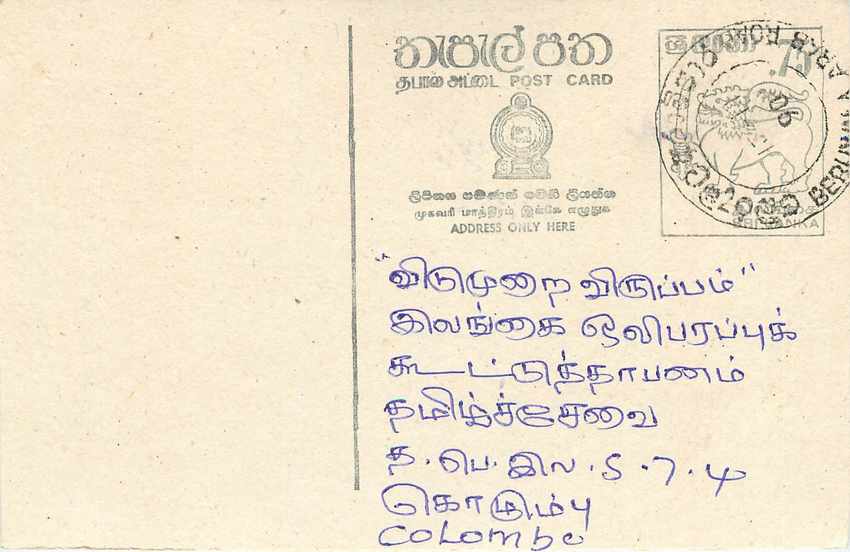 තැපැල් පත
தபால் அட்டை POST CARD
ශ්‍රී ලංකා 75
ලිපිනය පමණක් මෙහි ලියන්න
முகவரி மாத்திரம் இங்கே எழுதுக
ADDRESS ONLY HERE
SRI LANKA
"விடுமுறை விருப்பம்"
இலங்கை ஒலிபரப்புக்
கூட்டுத்தாபனம்
தமிழ்ச்சேவை
த.பெ.இல.5.7.4
கொழும்பு
COLOMBO